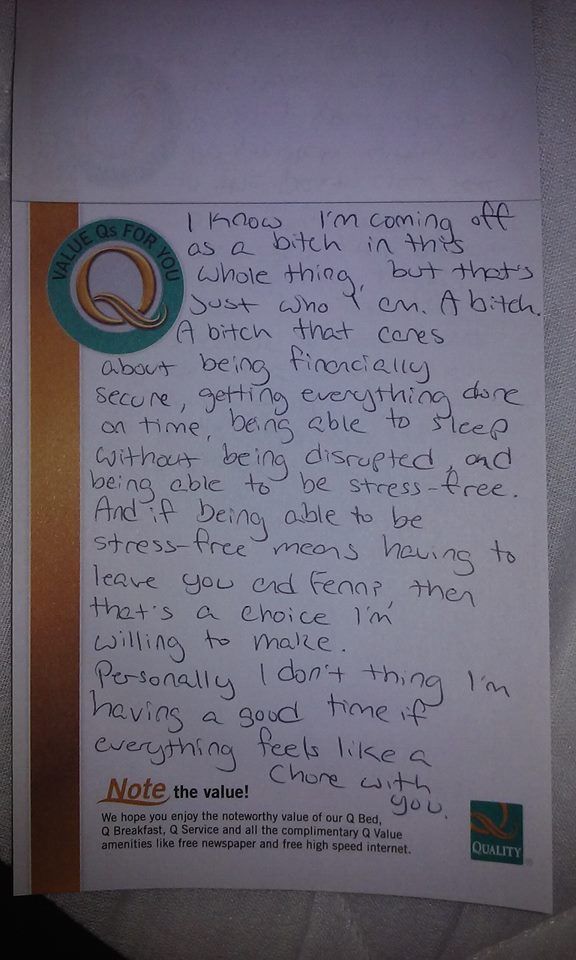 VALUE Qs FOR YOU
Q
I know I'm coming off
as a bitch in this
whole thing, but that's
just who I am. A bitch.
A bitch that cares
about being financially
secure, getting everything done
on time, being able to sleep
without being disrupted, and
being able to be stress-free.
And if being able to be
stress-free means having to
leave you and then
that's a choice I'm
willing to make.
Personally I don't thing I'm
having a good time if
everything feels like a
chore with
you.
Note the value!
We hope you enjoy the noteworthy value of our Q Bed,
Q Breakfast, Q Service and all the complimentary Q Value
amenities like free newspaper and free high speed internet.
QUALITY